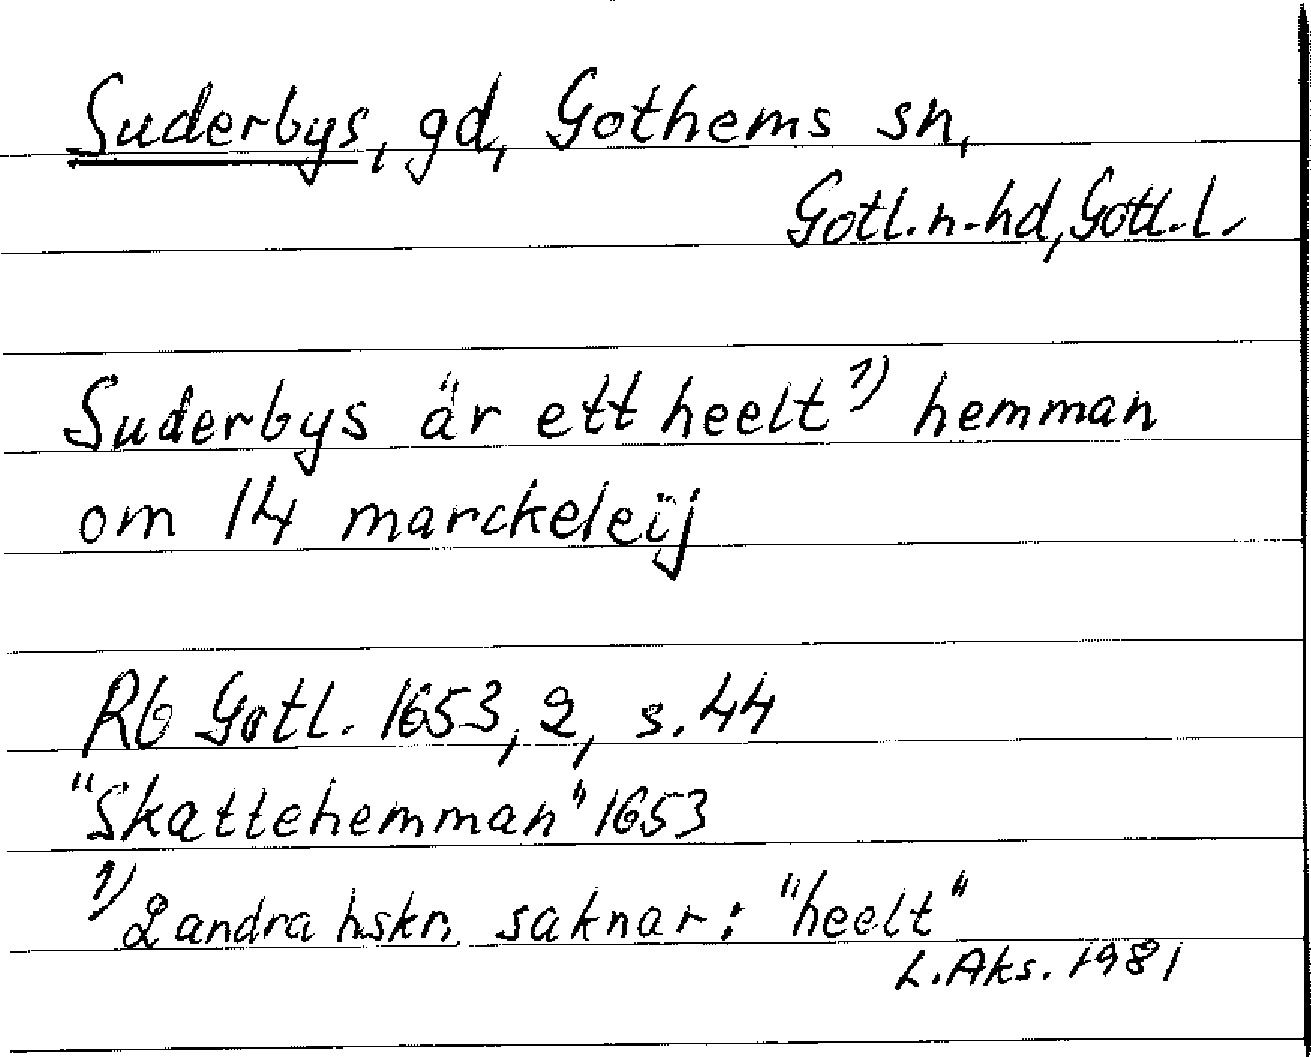 Suderbys, gd, Gothems sn,
Gotl.n.hd, Gotl.l.
Suderbys är ett heelt 1) hemman
om 14 marckeleÿ
Rb Gotl. 1653, 2, s. 44
"Skattehemman" 1653
1) 2 andra hskr. saknar: "heelt"
L. Aks. 1981